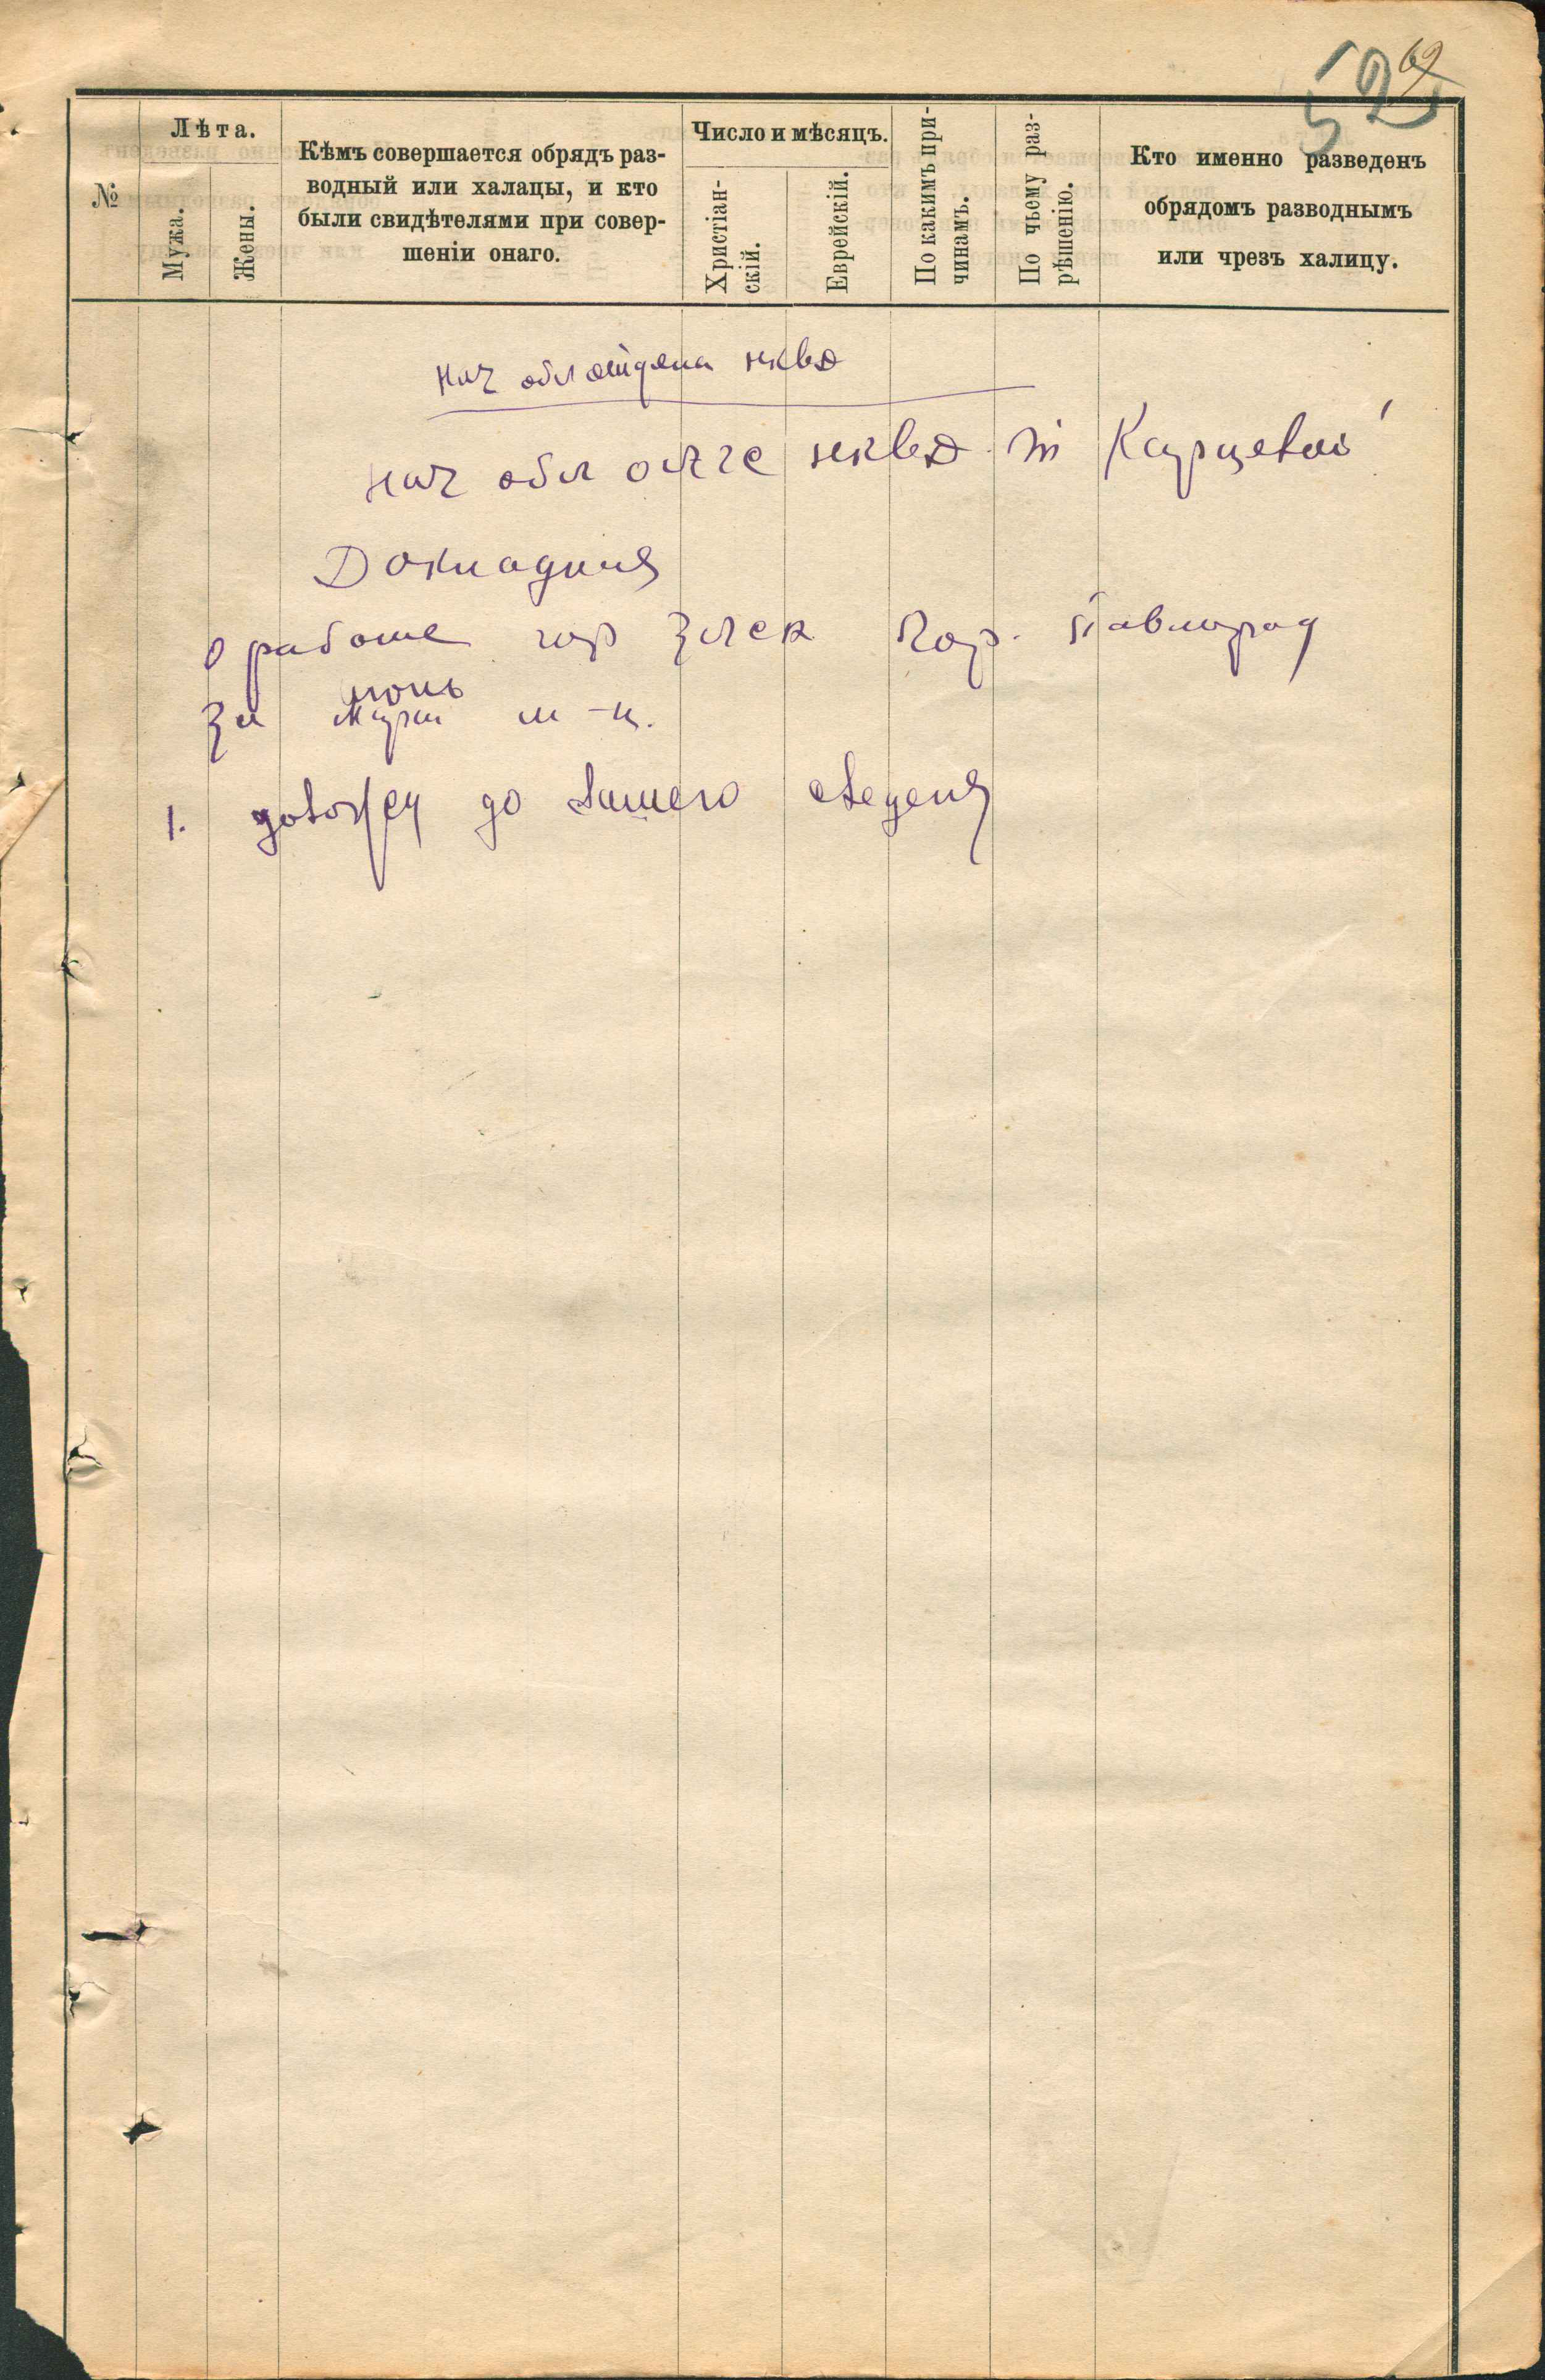 52
69
№
Лѣта.
Мужа.
Жены.
Кѣмъ совершается обрядъ раз-
водный или халацы, и кто
были свидѣтелями при совер-
шеніи онаго.
Число и мѣсяцъ.
Христіан-
скій.
Еврейскій.
По какимъ при-
чинамъ.
По чьему раз-
рѣшенію.
Кто именно разведенъ
обрядомъ разводнымъ
или чрезъ халицу.
нач обл отдела нквд
нач обл нквд т Карцевой
Докладная
О работе гор загск гор. Павлоград
июнь
За март м-ц.
1. довожу до вашего сведеня